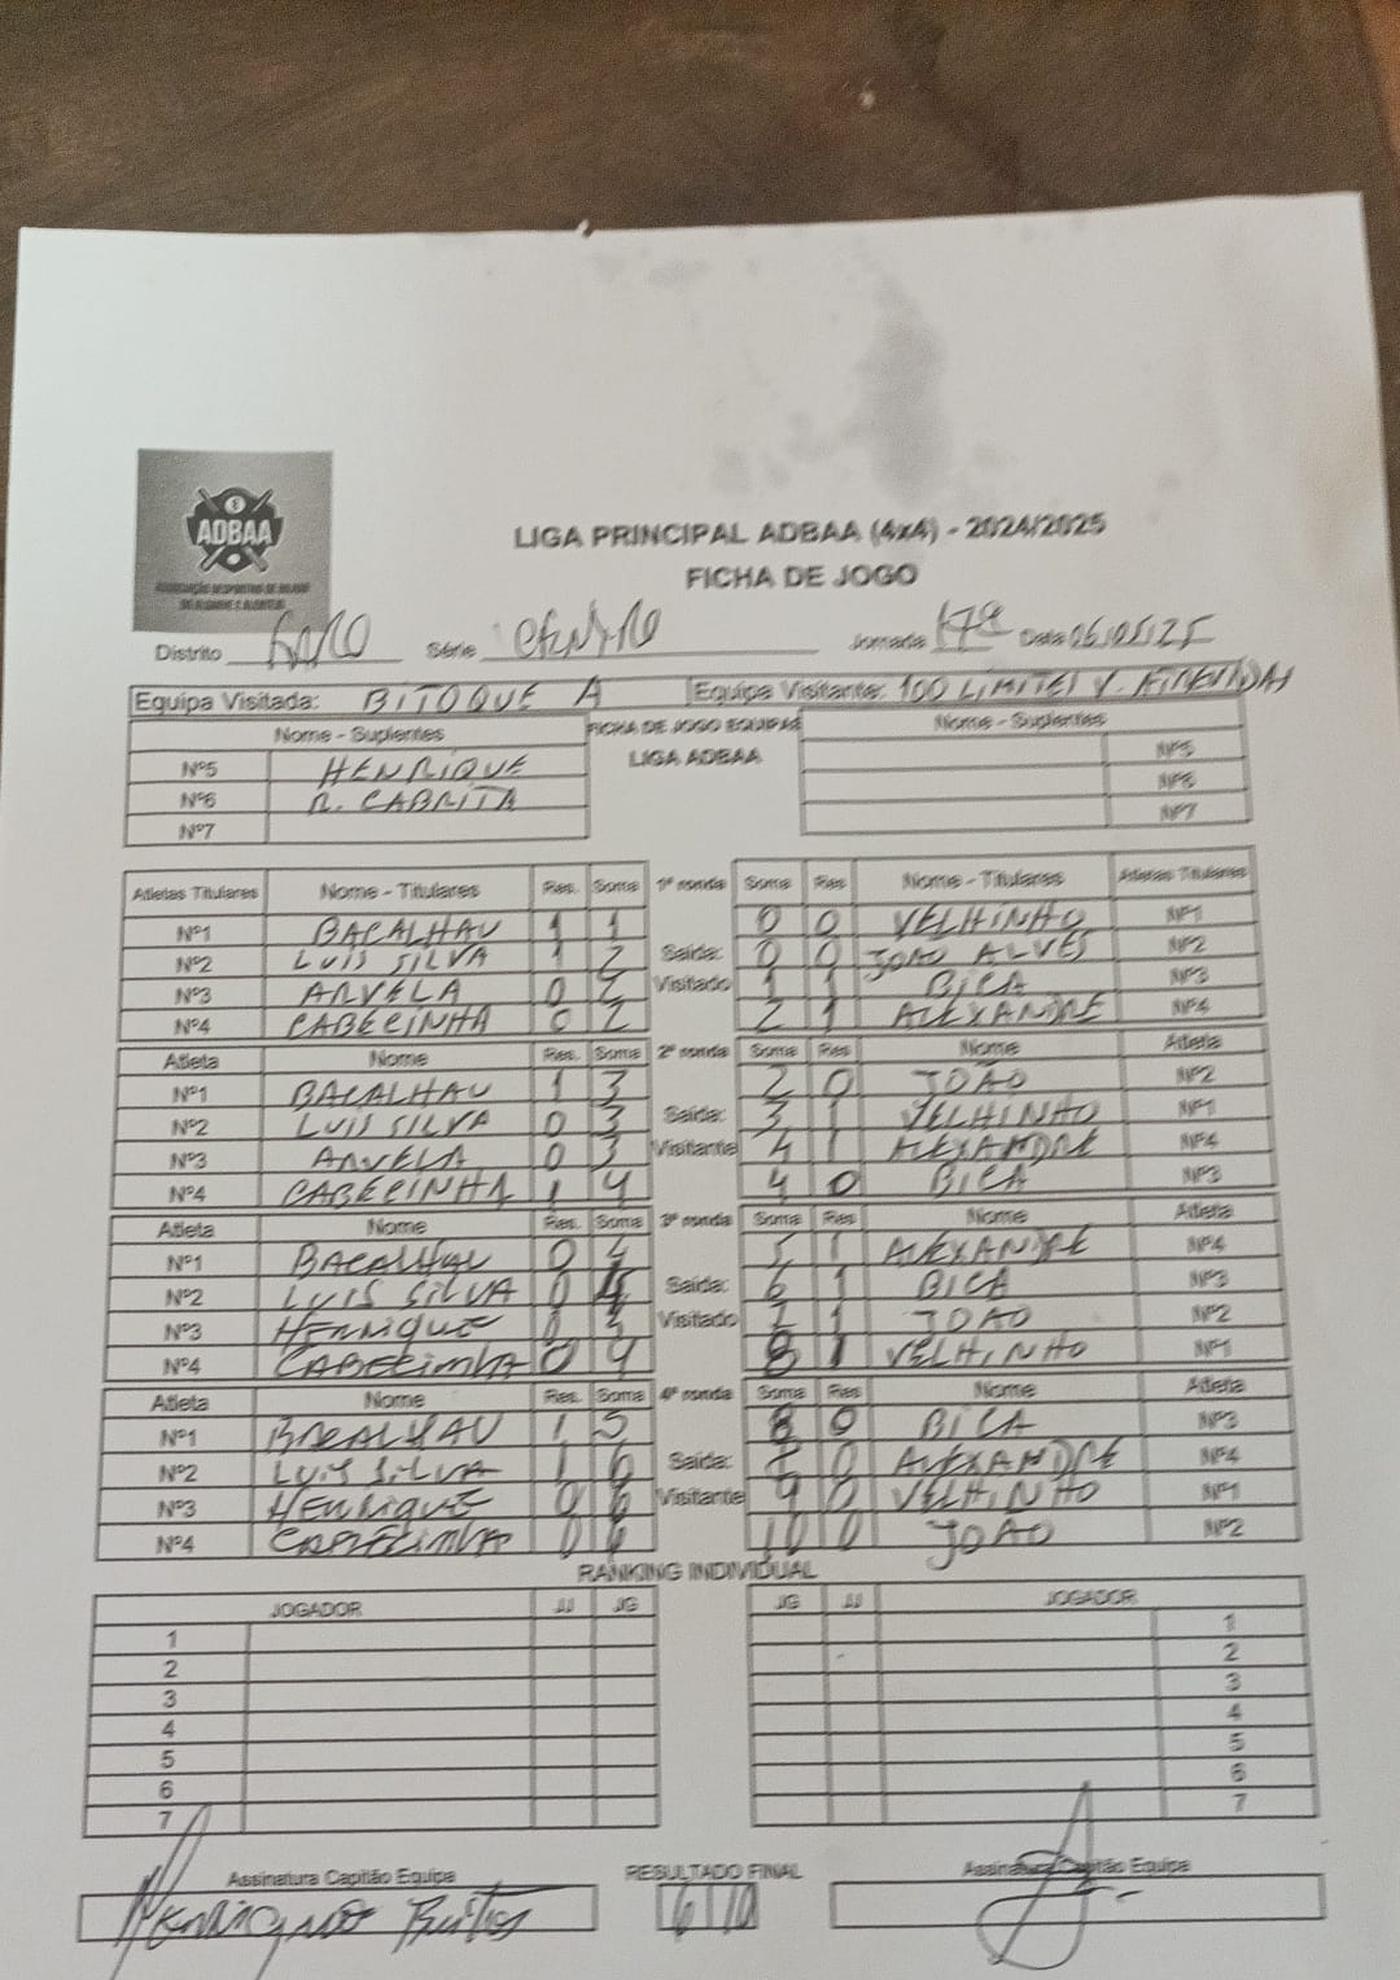 ADBAA
ASSOCIAÇÃO DESPORTIVA DE BILHAR
DO ALGARVE E ALENTEJO
LIGA PRINCIPAL ADBAA (4x4) - 2024/2025
FICHA DE JOGO
Distrito FARO Série CENTRO Jornada 17ª Data 06/05/25
Equipa Visitada: BITOQUE A Equipa Visitante: 100 LIMITES V.
Nome - Suplentes FICHA DE JOGO EQUIPAS Nome - Suplentes
LIGA ADBAA
Nº5 HENRIQUE Nº5
Nº6 R. CABRITA Nº6
Nº7 Nº7
Atletas Titulares Nome - Titulares Res. Soma 1ª ronda Soma Res Nome - Titulares Atletas Titulares
Nº1 BACALHAU 1 1 0 0 VELHINHO Nº1
Nº2 LUIS SILVA 1 2 Saída: 0 0 JOAO ALVES Nº2
Nº3 ARVELA 0 2 Visitado 1 1 BICA Nº3
Nº4 CABECINHA 0 2 2 1 ALEXANDRE Nº4
Atleta Nome Res. Soma 2ª ronda Soma Res Nome Atleta
Nº1 BACALHAU 1 3 2 0 JOÃO Nº2
Nº2 LUIS SILVA 0 3 Saída: 3 1 VELHINHO Nº1
Nº3 ARVELA 0 3 Visitante 4 1 ALEXANDRE Nº4
Nº4 CABECINHA 1 4 4 0 BICA Nº3
Atleta Nome Res. Soma 3ª ronda Soma Res Nome Atleta
Nº1 BACALHAU 0 4 5 1 ALEXANDRE Nº4
Nº2 LUIS SILVA 0 4 Saída: 6 1 BICA Nº3
Nº3 HENRIQUE 0 4 Visitado 7 1 JOAO Nº2
Nº4 CABECINHA 0 4 8 1 VELHINHO Nº1
Atleta Nome Res. Soma 4ª ronda Soma Res Nome Atleta
Nº1 BACALHAU 1 5 8 0 BICA Nº3
Nº2 LUIS SILVA 1 6 Saída: 8 0 ALEXANDRE Nº4
Nº3 HENRIQUE 0 6 Visitante 9 0 VELHINHO Nº1
Nº4 CABECINHA 0 6 10 0 JOAO Nº2
RANKING INDIVIDUAL
JOGADOR JJ JG JG JJ JOGADOR
1 1
2 2
3 3
4 4
5 5
6 6
7 7
Assinatura Capitão Equipa RESULTADO FINAL Assinatura Capitão Equipa
6 10